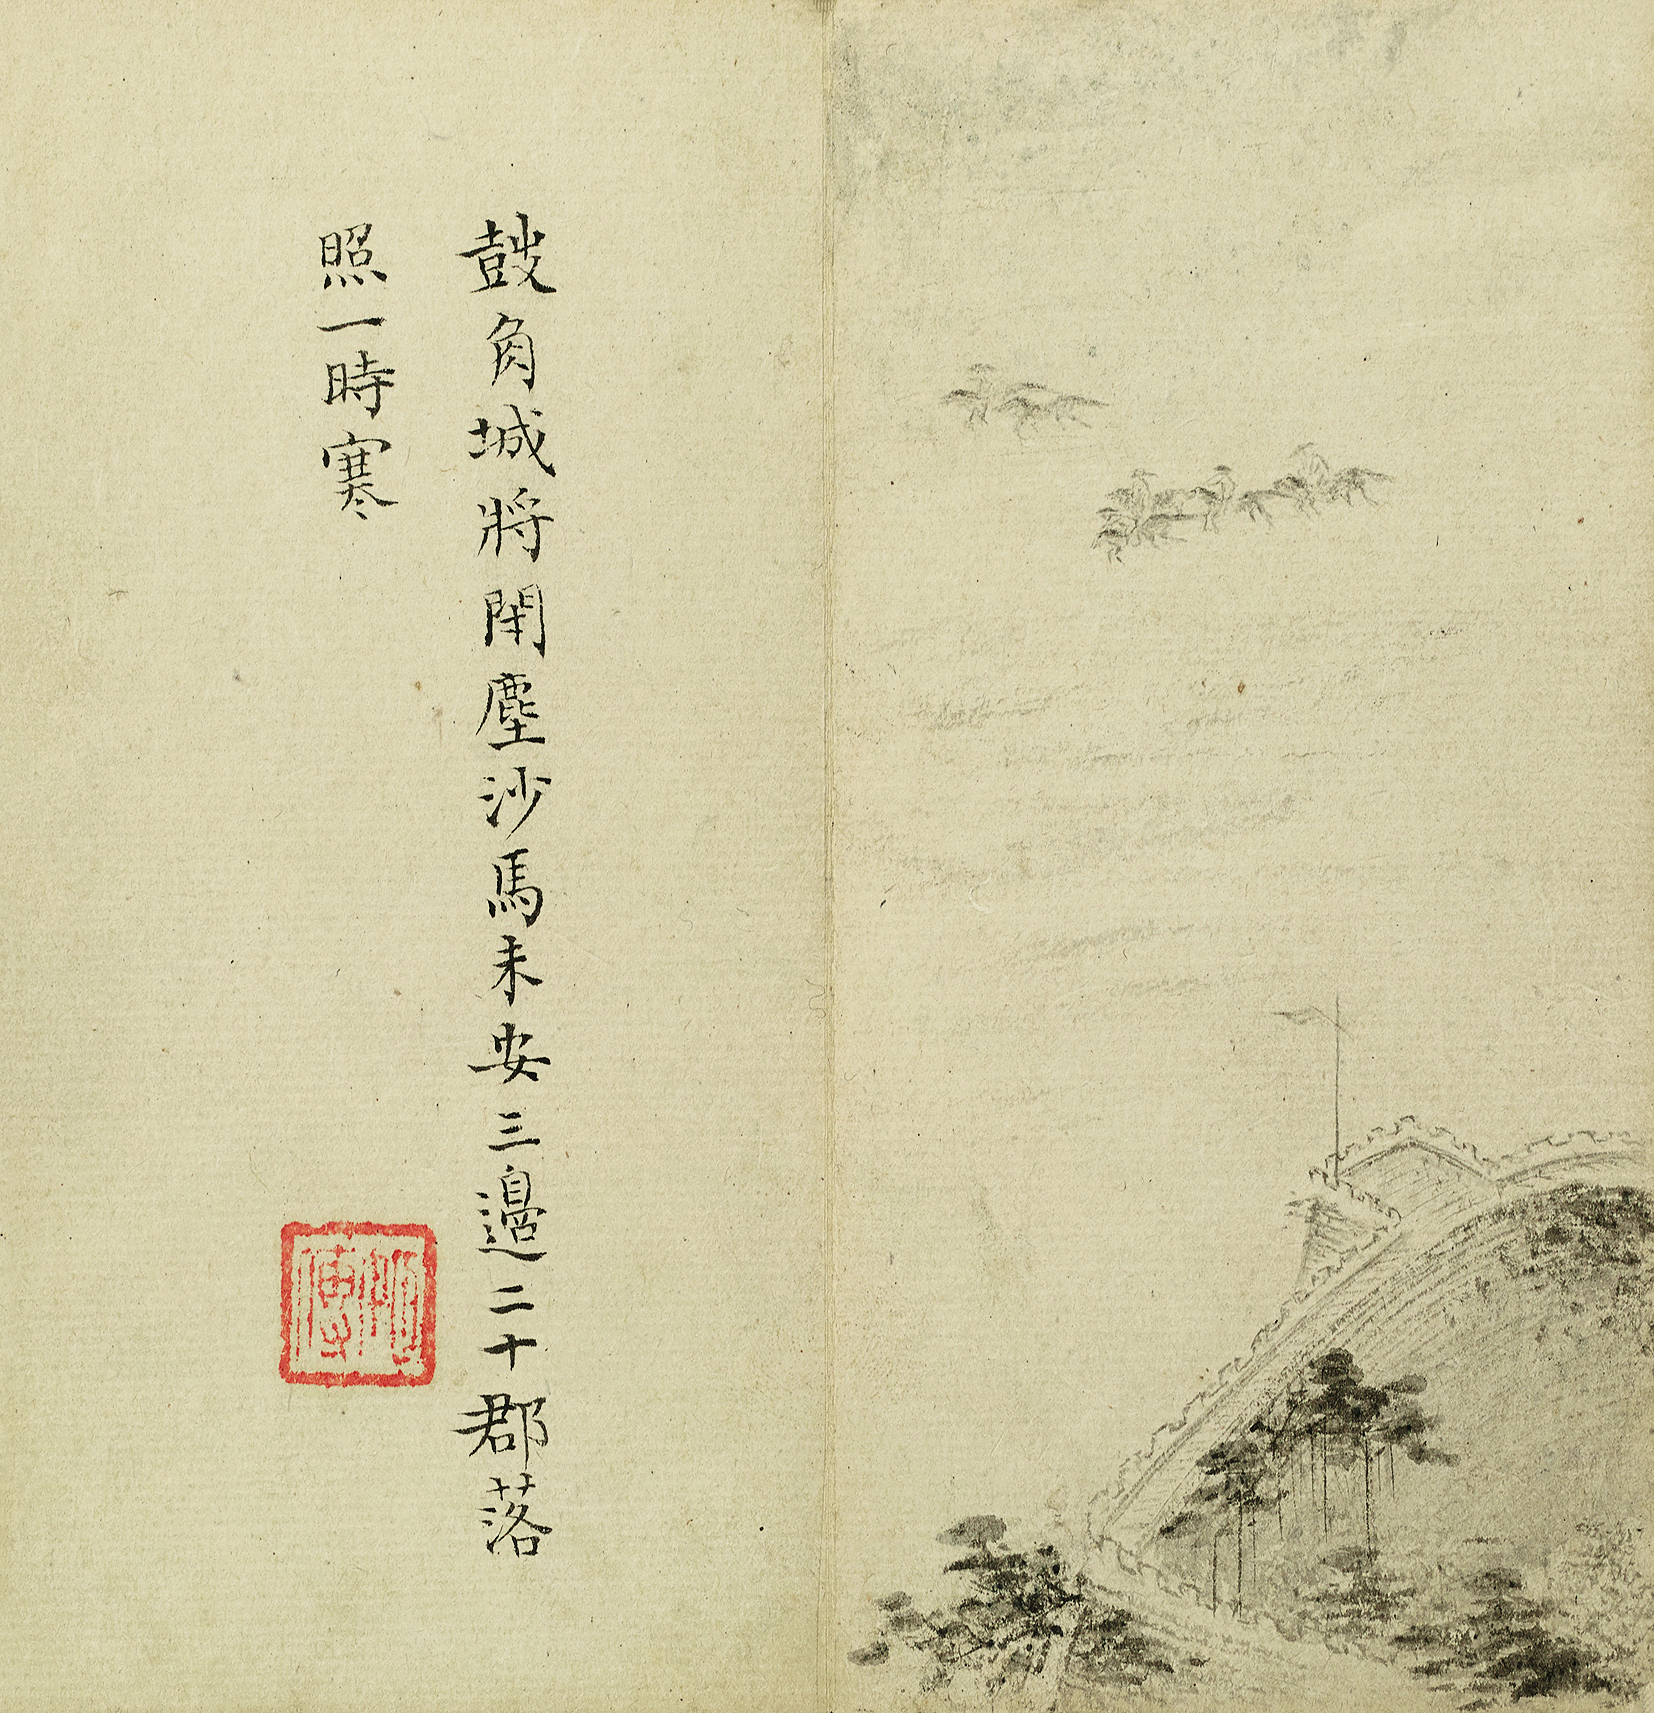 鼓角城將閉塵沙馬未安三邊二十郡落
照一時寒